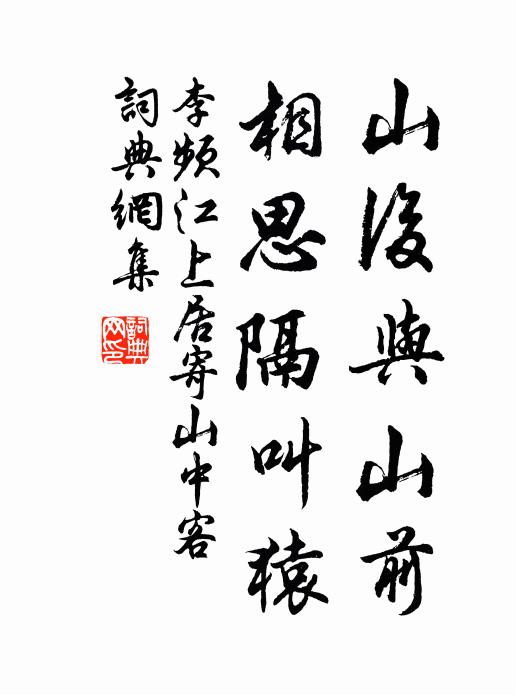 山後與山前
相思隔叫猿
李頻江上居寄山中客
詞典網集
詞典
网印